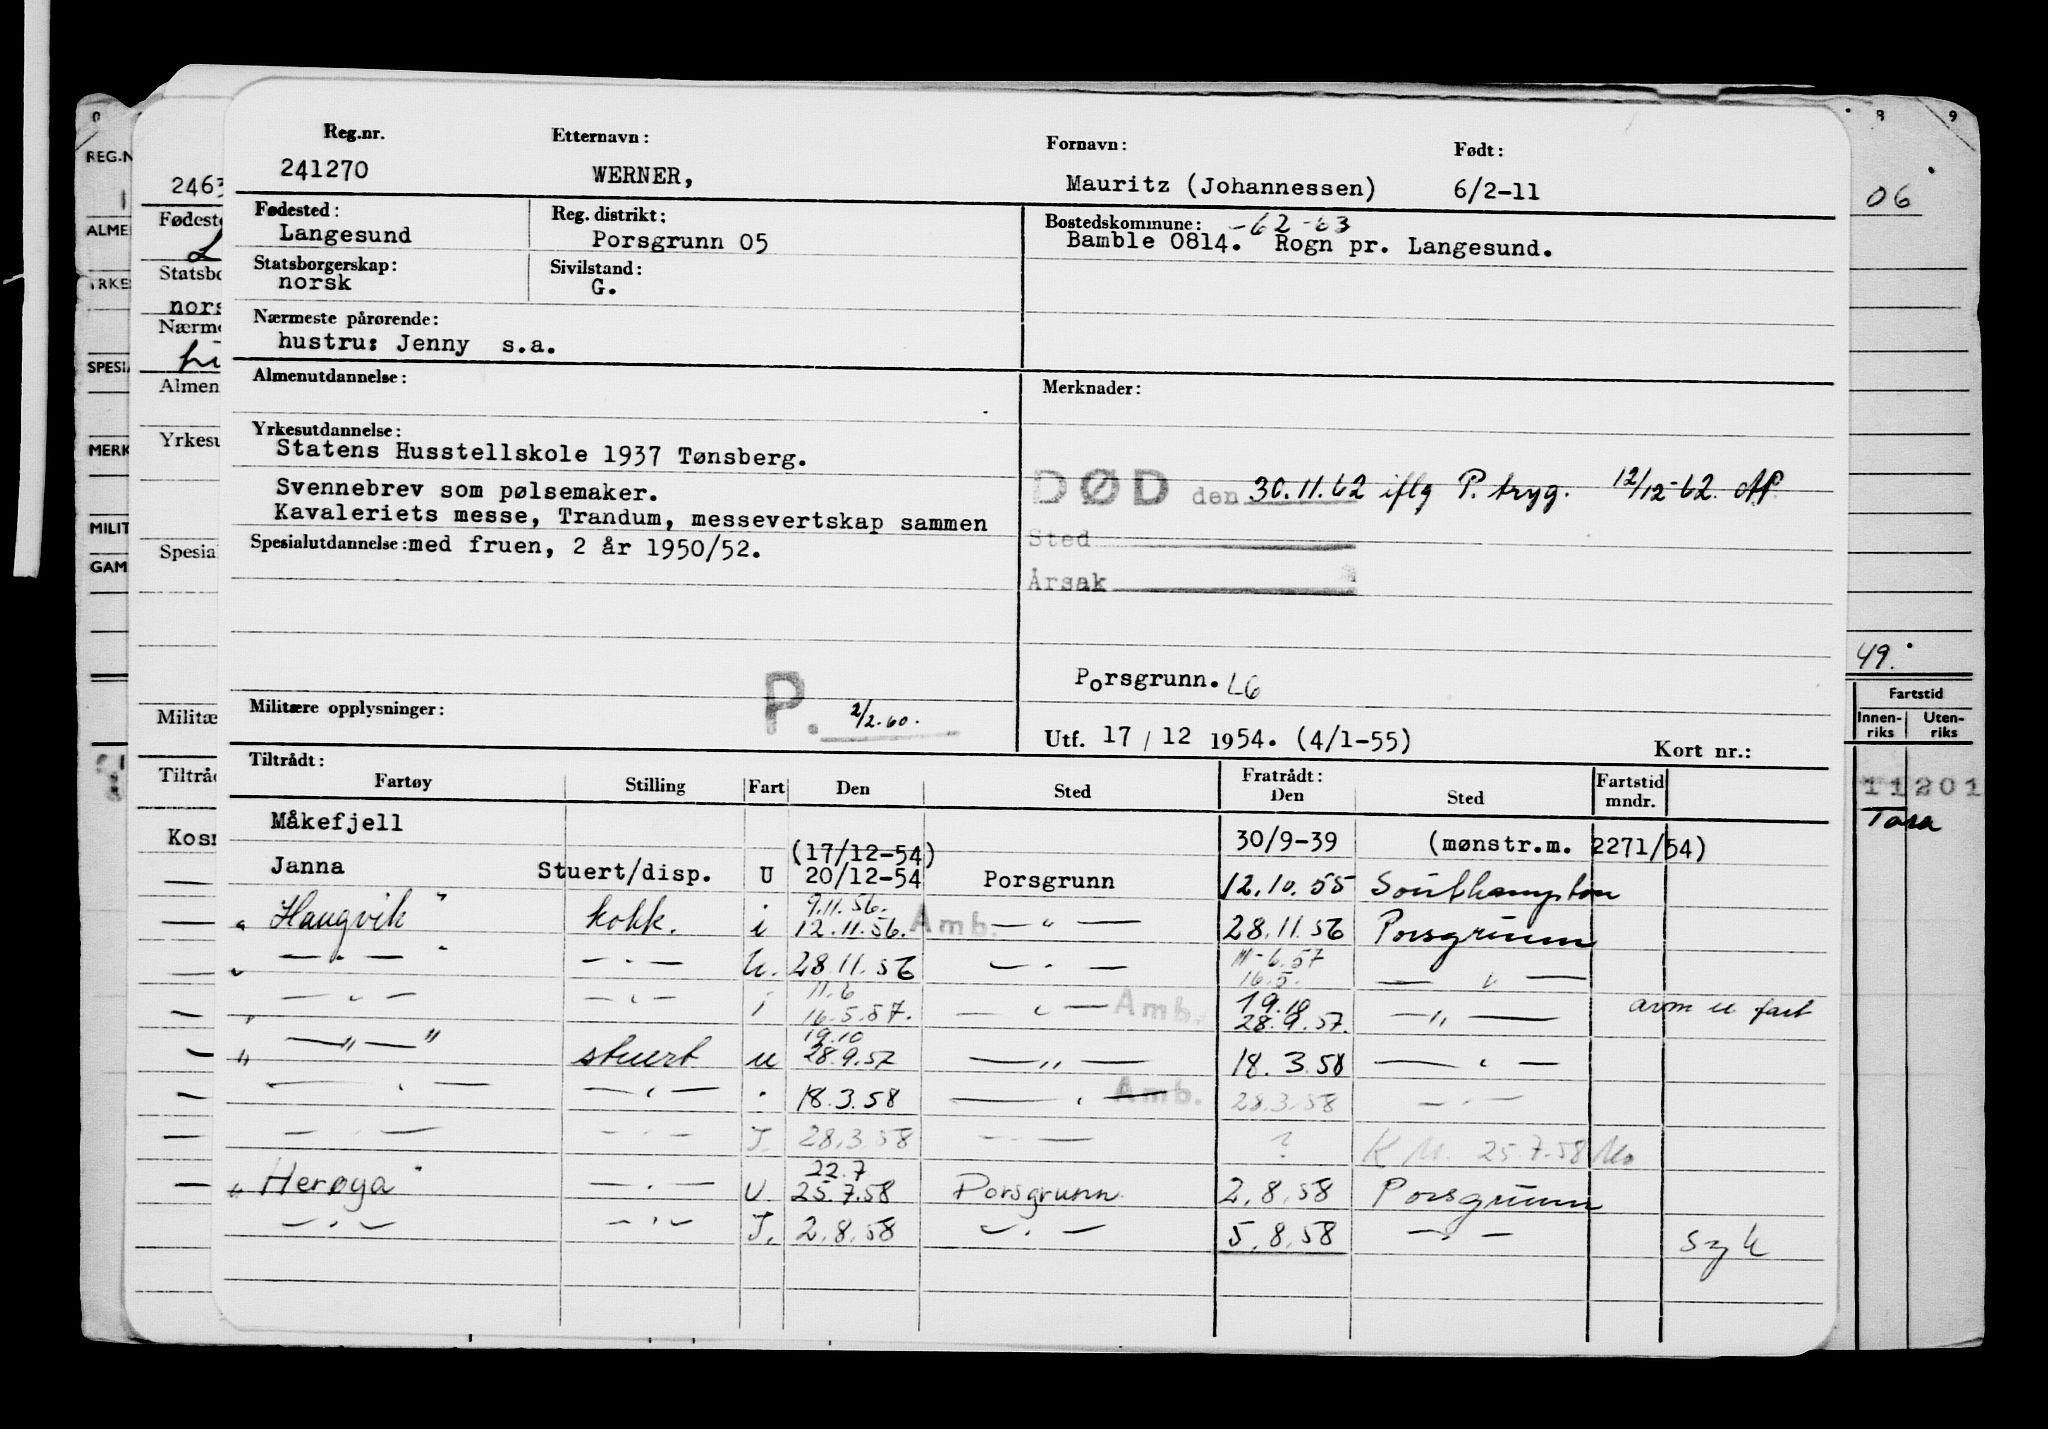 Reg.nr. Etternavn: Fornavn: Født:
241270 WERNER, Mauritz (Johannessen) 6/2-11
Fødested: Reg. distrikt: Bostedskommune: -62-63
Langesund Porsgrunn 05 Bamble 0814. Rogn pr. Langesund.
Statsborgerskap: Sivilstand:
norsk G.
Nærmeste pårørende:
hustru: Jenny s.a.
Almenutdannelse: Merknader:
Yrkesutdannelse:
Statens Husstellskole 1937 Tønsberg.
DØD den 30.11.62 iflg P. tryg. 12/12-62. AP.
Svennebrev som pølsemaker.
Kavaleriets messe, Trandum, messevertskap sammen
Sted
Spesialutdannelse: med fruen, 2 år 1950/52.
Årsak
Porsgrunn. L6
Militære opplysninger: P. 2/2.60.
Utf. 17 / 12 1954. (4/1-55) Kort nr.:
Tiltrådt: Fratrådt:
Fartøy Stilling Fart Den Sted Den Sted Fartstid mndr.
Måkefjell 30/9-39 (mønstr.m. 2271/54)
(17/12-54)
Janna Stuert/disp. U 20/12-54 Porsgrunn 12.10.55 Southampton
9.11.56.
" Haugvik " kokk. i 12.11.56. Amb. — " — 28.11.56 Porsgrunn
" — " — " — " — U. 28.11.56 — " — 11-6.57
16.5. — " —
11.6
" — " — — " — i 16.5.57. — " — Amb. 19.10
28.9.57. — " — avm u fart
19.10
" — " — " stuert u 28.9.57 — " — 18.3.58 — " —
— " — — " — " 18.3.58 — " — Amb. 28.3.58 — " —
— " — — " — I. 28.3.58 — " — ? K M. 25.7.58
22.7
" Herøya " — " — U. 25.7.58 Porsgrunn 2.8.58 Porsgrunn
— " — — " — I. 2.8.58 — " — 5.8.58 — " — syk
0
REG.N
ALME
YRKE
SPESI
MERK
MILIT
GAM
2463
Fødeste
Statsbo
nors
Nærme
Almen
Yrkesu
Spesial
Militæ
Tiltråd
Kosm
8 9
06
49.
Fartstid
Innen-
riks Uten-
riks
11201
Tara